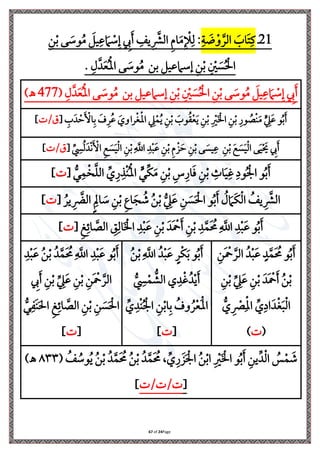 21. كِتَابَ الرَّوْضَةِ: لِلْإِمَامِ الشَّرِيفِ أَبِي إِسْمَاعِيلَ مُوسَى بْنِ
الْحُسَيْنِ بْنِ إسماعيل بن مُوسَى الْمُعَدَّلِ .
أَبِي إِسْمَاعِيلَ مُوسَى بْنِ الْحُسَيْنِ بْنِ إسماعيل بن مُوسَى الْمُعَدَّلِ (477 هـ)
أَبُو عَلِيِّ مَنْصُورِ بْنِ الْخَيْرِ بْنِ يَعْقُوبَ بْنِ يُمْلِي الْمِغْرَاوِيِّ عُرِفَ بِالْأَحْدَبِ [ق/ت]
أَبِي يَحْيَى الْيَسَعَ بْنِ عِيسَى بْنِ حَزْمِ بْنِ عَبْدِ اللَّهِ بْنِ الْيَسَعِ الْأَنْدَلُسِيِّ [ق/ت]
أَبُو الْجُودِ غِيَاثِ بْنِ فَارِسِ بْنِ مَكِّيٍّ الْمُنْذِرِيِّ اللَّخْمِيُّ [ت]
الشَّرِيفُ الْكَمَالُ أَبُو الْحَسَنِ عَلِيُّ بْنُ شُجَاعِ بْنِ سَالِمٍ الضَّرِيرُ [ت]
أَبُو عَبْدِ اللَّهِ مُحَمَّدِ بْنِ أَحْمَدَ بْنِ عَبْدِ الْخَالِقِ الصَّائِغِ [ت]
أَبُو مُحَمَّدٍ عَبْدُ الرَّحْمَنِ
بْنُ أَحْمَدَ بْنِ عَلِيِّ بْنِ
الْبَغْدَادِيِّ الْمِصْرِيُّ
(ت)
أَبُو بَكْرٍ عَبْدُ اللَّهِ بْنُ
أَيْدُغْدِي الشَّمْسِيُّ
الْمَعْرُوفُ بِابْنِ الْجُنْدِيِّ
[ت]
أَبُو عَبْدِ اللَّهِ مُحَمَّدُ بْنُ عَبْدِ
الرَّحْمَنِ بْنِ عَلِيِّ بْنِ أَبِي
الْحَسَنِ بْنِ الصَّائِغِ الْحَنَفِيُّ
[ت]
شَمْسُ الدِّينِ أَبُو الْخَيْرِ ابْنُ الْجَزَرِيِّ، مُحَمَّدُ بْنُ مُحَمَّدُ بْنُ يُوسُفُ (٨٣٣ هـ)
[ت/ت/ت]
67 of 24Page